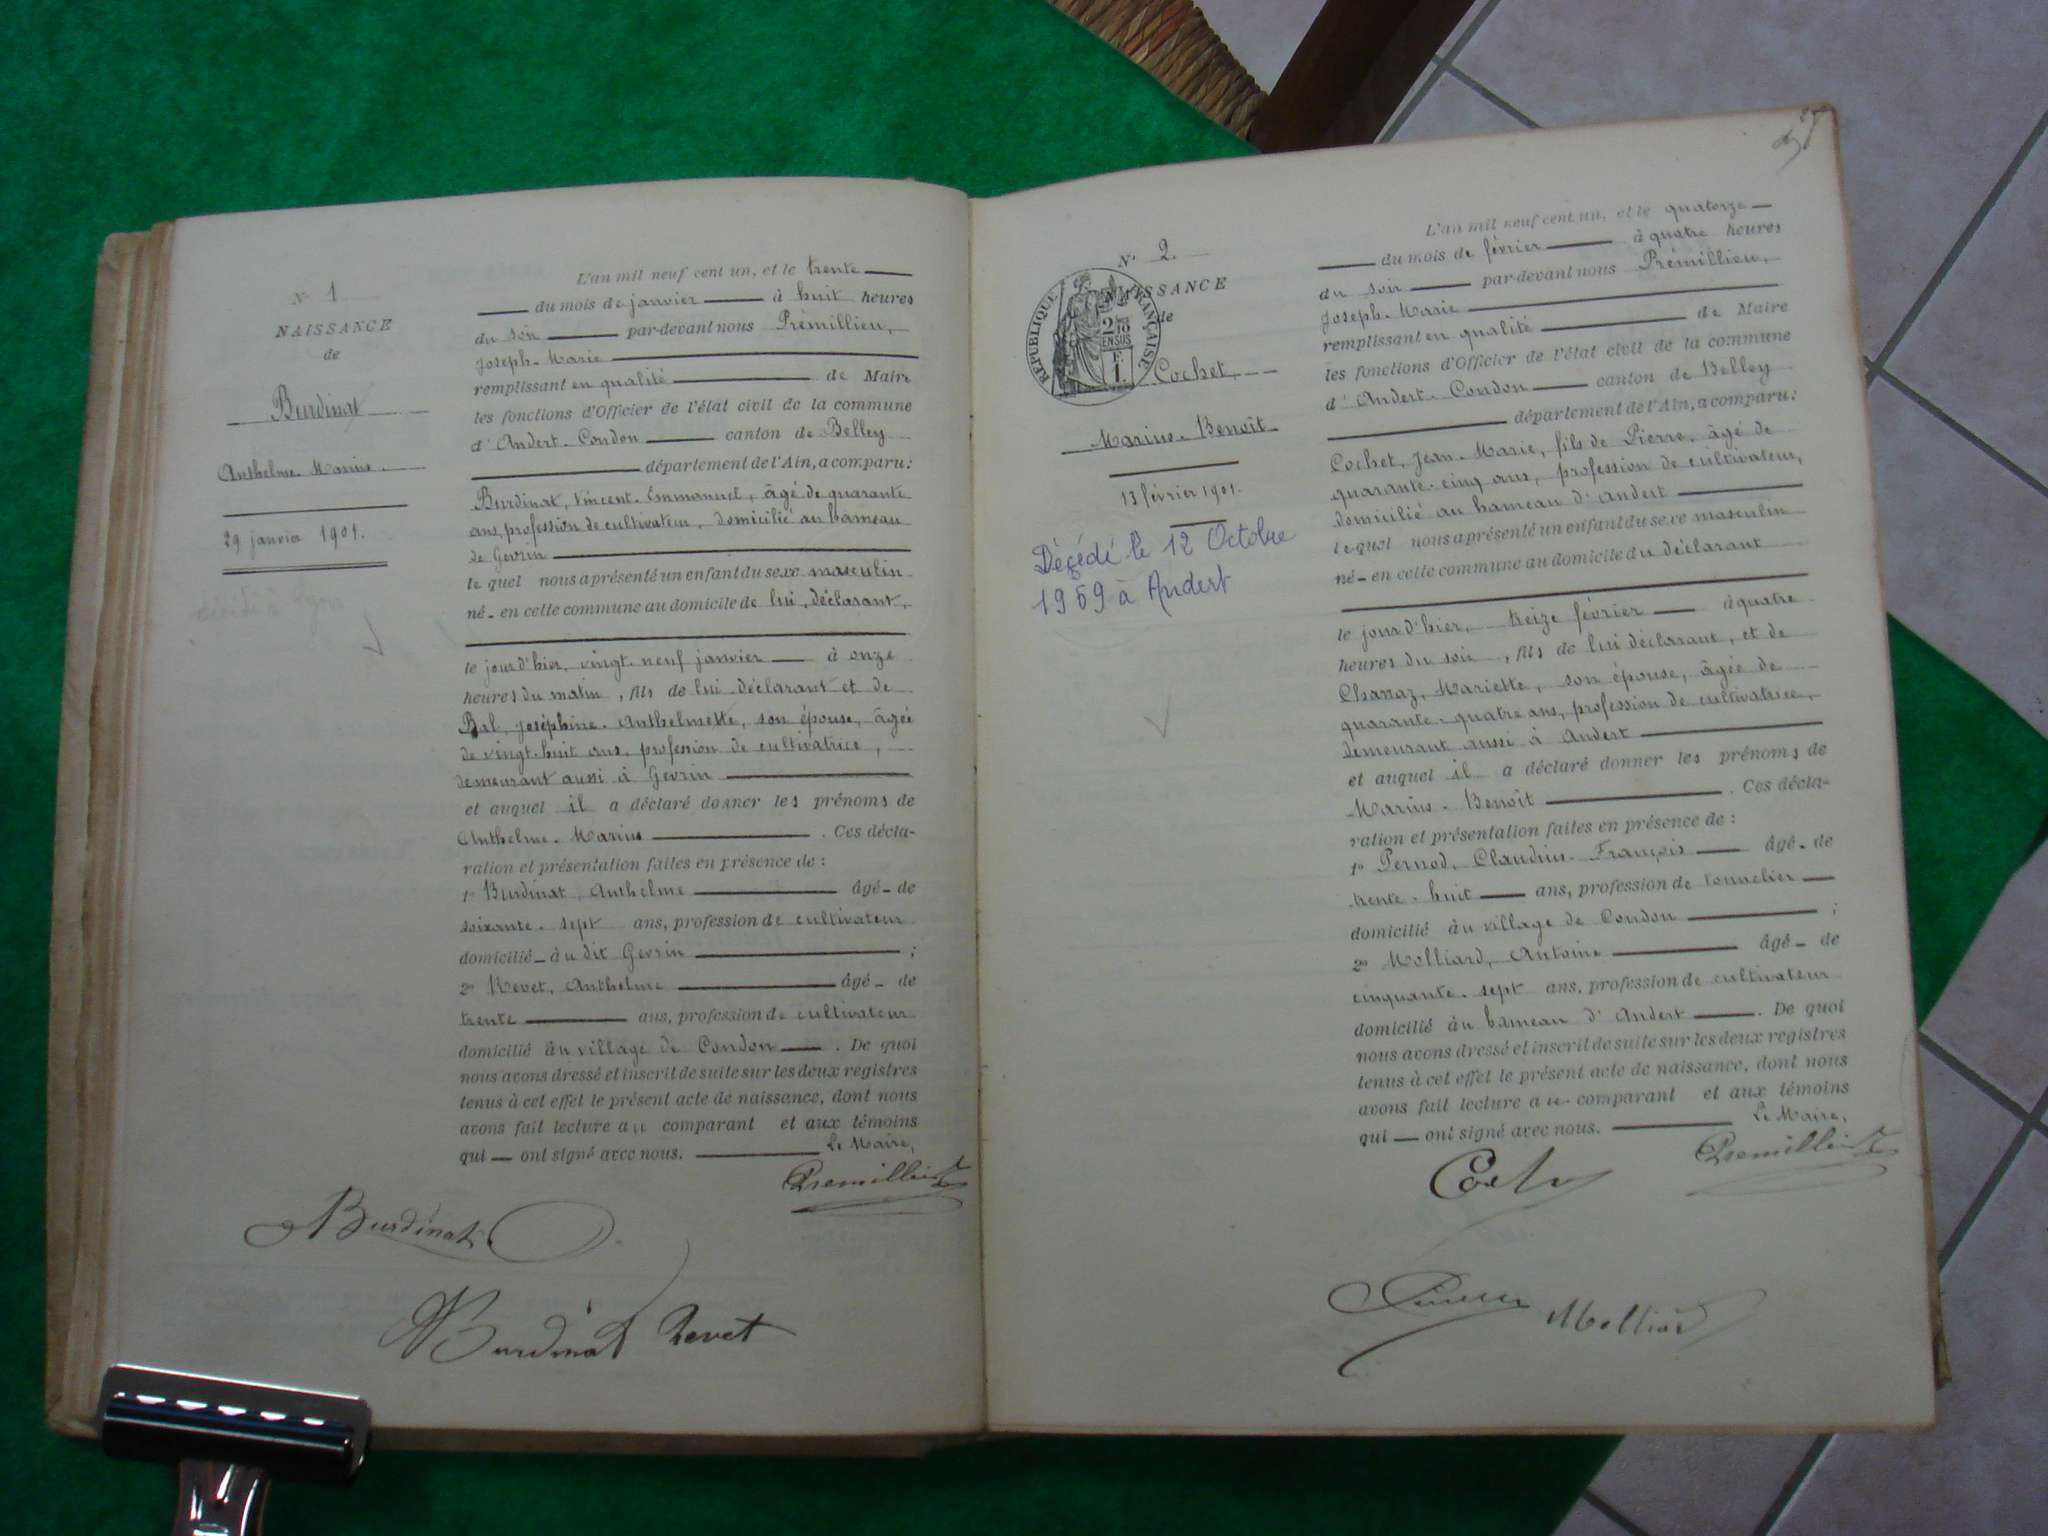 N° 1
NAISSANCE
de
Burdinat
Anthelme-Marius
29 janvier 1901.
décédé à Lyon
L'an mil neuf cent un, et le trente
du mois de janvier à huit heures
du soir par-devant nous Prémillieu,
Joseph-Marie
remplissant en qualité de Maire
les fonctions d'Officier de l'état civil de la commune
d'Andert-Condon canton de Belley
département de l'Ain, a comparu:
Burdinat, Vincent-Emmanuel, âgé de quarante
ans, profession de cultivateur, domicilié au hameau
de Gevrin
le quel nous a présenté un enfant du sexe masculin
né - en cette commune au domicile de lui, déclarant,
le jour d'hier, vingt-neuf janvier à onze
heures du matin, fils de lui déclarant et de
Bal, Joséphine-Anthelmette, son épouse, âgée
de vingt-huit ans, profession de cultivatrice,
demeurant aussi à Gevrin
et auquel il a déclaré donner les prénoms de
Anthelme-Marius . Ces décla-
ration et présentation faites en présence de :
1° Burdinat, Anthelme âgé - de
soixante-sept ans, profession de cultivateur
domicilié - au dit Gevrin ;
2° Revet, Anthelme âgé - de
trente ans, profession de cultivateur
domicilié au village de Condon . De quoi
nous avons dressé et inscrit de suite sur les deux registres
tenus à cet effet le présent acte de naissance, dont nous
avons fait lecture au comparant et aux témoins
qui — ont signé avec nous. Le Maire,
Premillieu
Burdinat
Burdinat Revet
N° 2.
NAISSANCE
de
RÉPUBLIQUE FRANÇAISE
2/10
EN SUS
F.
1.
Cochet,
Marius-Benoît
13 février 1901.
Décédé le 12 Octobre
1969 à Andert
L'an mil neuf cent un, et le quatorze
du mois de février à quatre heures
du soir par-devant nous Prémillieu,
Joseph-Marie
remplissant en qualité de Maire
les fonctions d'Officier de l'état civil de la commune
d'Andert-Condon canton de Belley
département de l'Ain, a comparu:
Cochet, Jean-Marie, fils de Pierre, âgé de
quarante-cinq ans, profession de cultivateur,
domicilié au hameau d'Andert
le quel nous a présenté un enfant du sexe masculin
né - en cette commune au domicile du déclarant
le jour d'hier, treize février à quatre
heures du soir, fils de lui déclarant, et de
Chanaz, Mariette, son épouse, âgée de
quarante-quatre ans, profession de cultivatrice,
demeurant aussi à Andert
et auquel il a déclaré donner les prénoms de
Marius-Benoît . Ces décla-
ration et présentation faites en présence de :
1° Pernod, Claudius-François âgé - de
trente-huit ans, profession de tonnelier
domicilié au village de Condon ;
2° Molliard, Antoine âgé - de
cinquante-sept ans, profession de cultivateur
domicilié au hameau d'Andert . De quoi
nous avons dressé et inscrit de suite sur les deux registres
tenus à cet effet le présent acte de naissance, dont nous
avons fait lecture au comparant et aux témoins
qui — ont signé avec nous. Le Maire,
Premillieu
Molliard